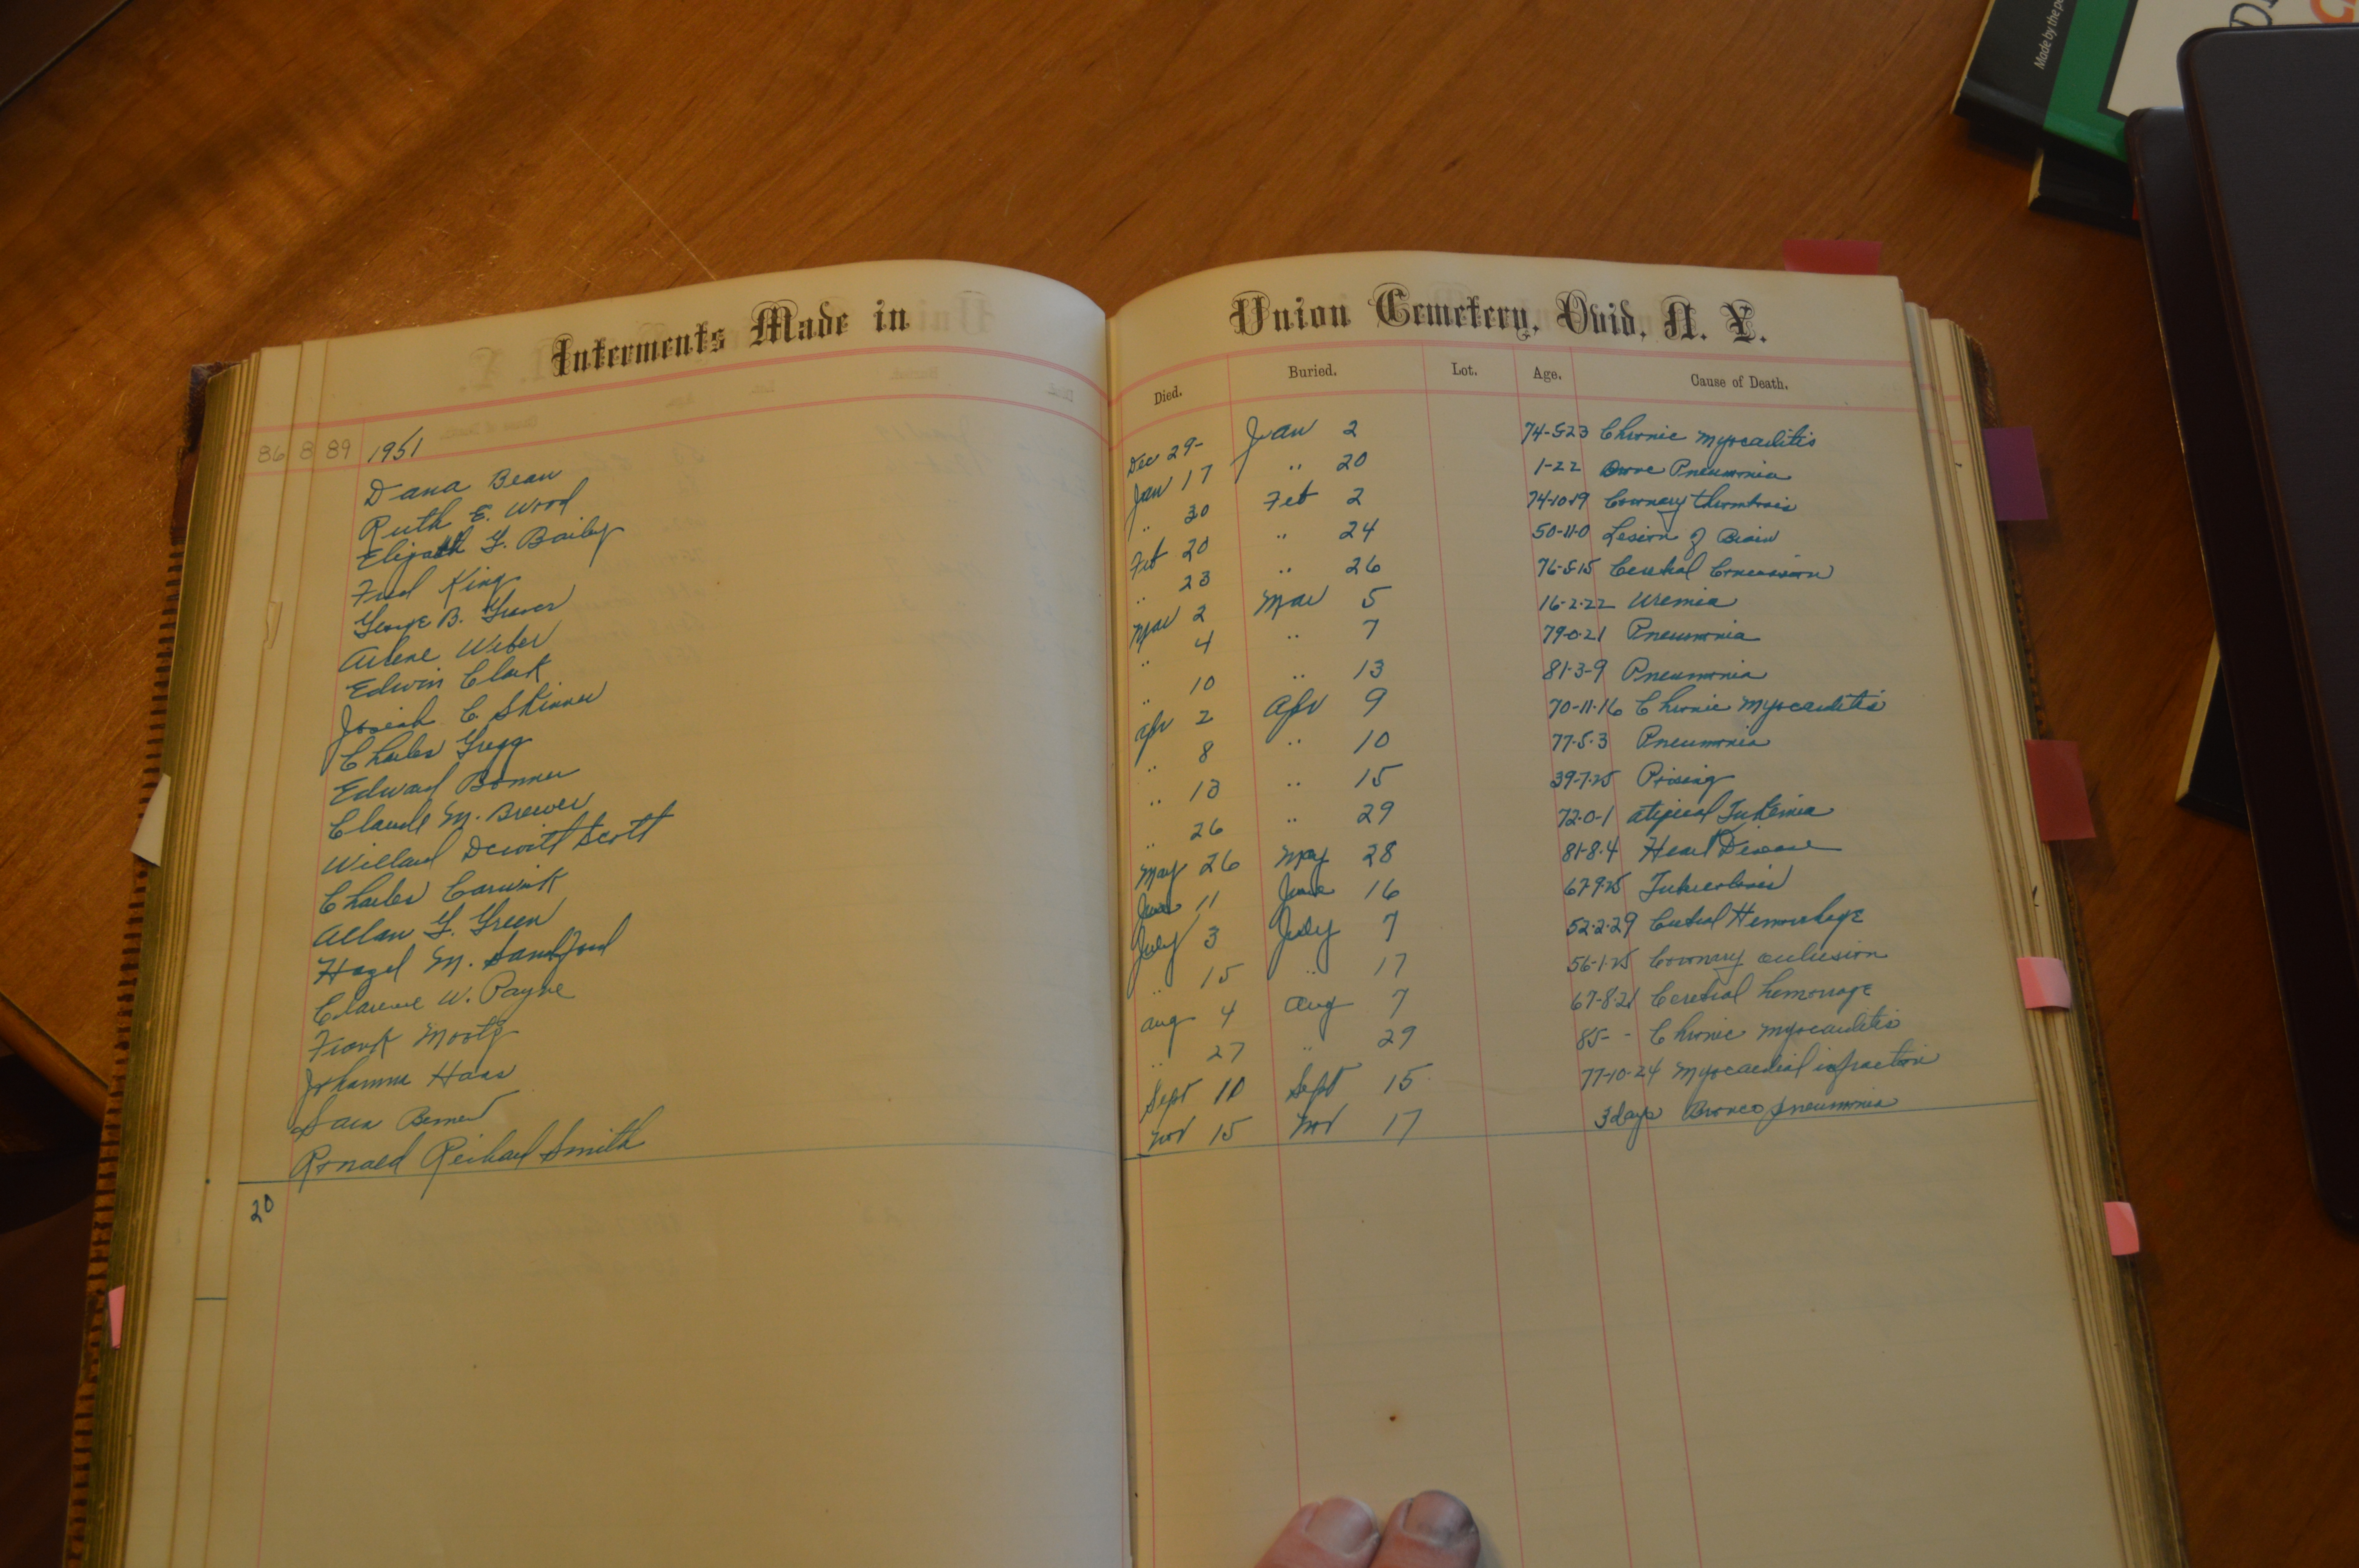 Made by the
Interments Made in
Union Cemetery, Ovid, N. Y.
Died. Buried. Lot. Age. Cause of Death.
86 8 89 1951
Dana Bean Dec 29- Jan 2 74-5-23 Chronic Myocarditis
Ruth E. Wood Jan 17 " 20 1-22 Pneumonia
Elizabeth G. Bailey " 30 Feb 2 74-10-19 Coronary thrombosis
Fred King Feb 20 " 24 50-11-0 Lesion of Brain
George B. " 23 " 26 76-5-15
Arlene Weber Mar 2 Mar 5 16-2-22 Uremia
Edwin Clark " 4 " 7 79-0-21 Pneumonia
Josiah C Skinner " 10 " 13 81-3-9 Pneumonia
Charles Gregg Apr 2 Apr 9 70-11-16 Chronic Myocarditis
Edward Bonner " 8 " 10 77-5-3 Pneumonia
Claude M. Brewer " 13 " 15 39-7-25
Willard Dewitt Scott " 26 " 29 72-0-1
Charles Carwick May 26 May 28 81-8-4 Heart Disease
Allan G. Green June 11 June 16 67-9-25 Tuberculosis
Hazel M. Sandford July 3 July 7 52-2-29 Hemorrhage
Clarence W. Payne " 15 " 17 56-1-25 Coronary
Frank Aug 4 Aug 7 67-8-21 hemorrage
Johanna Haas " 27 " 29 85- - Chronic Myocarditis
Sara Sept 10 Sept 15 77-10-24 Myocardial infraction
Ronald Richard Smith Nov 15 Nov 17 3 days Bronco pneumonia
20